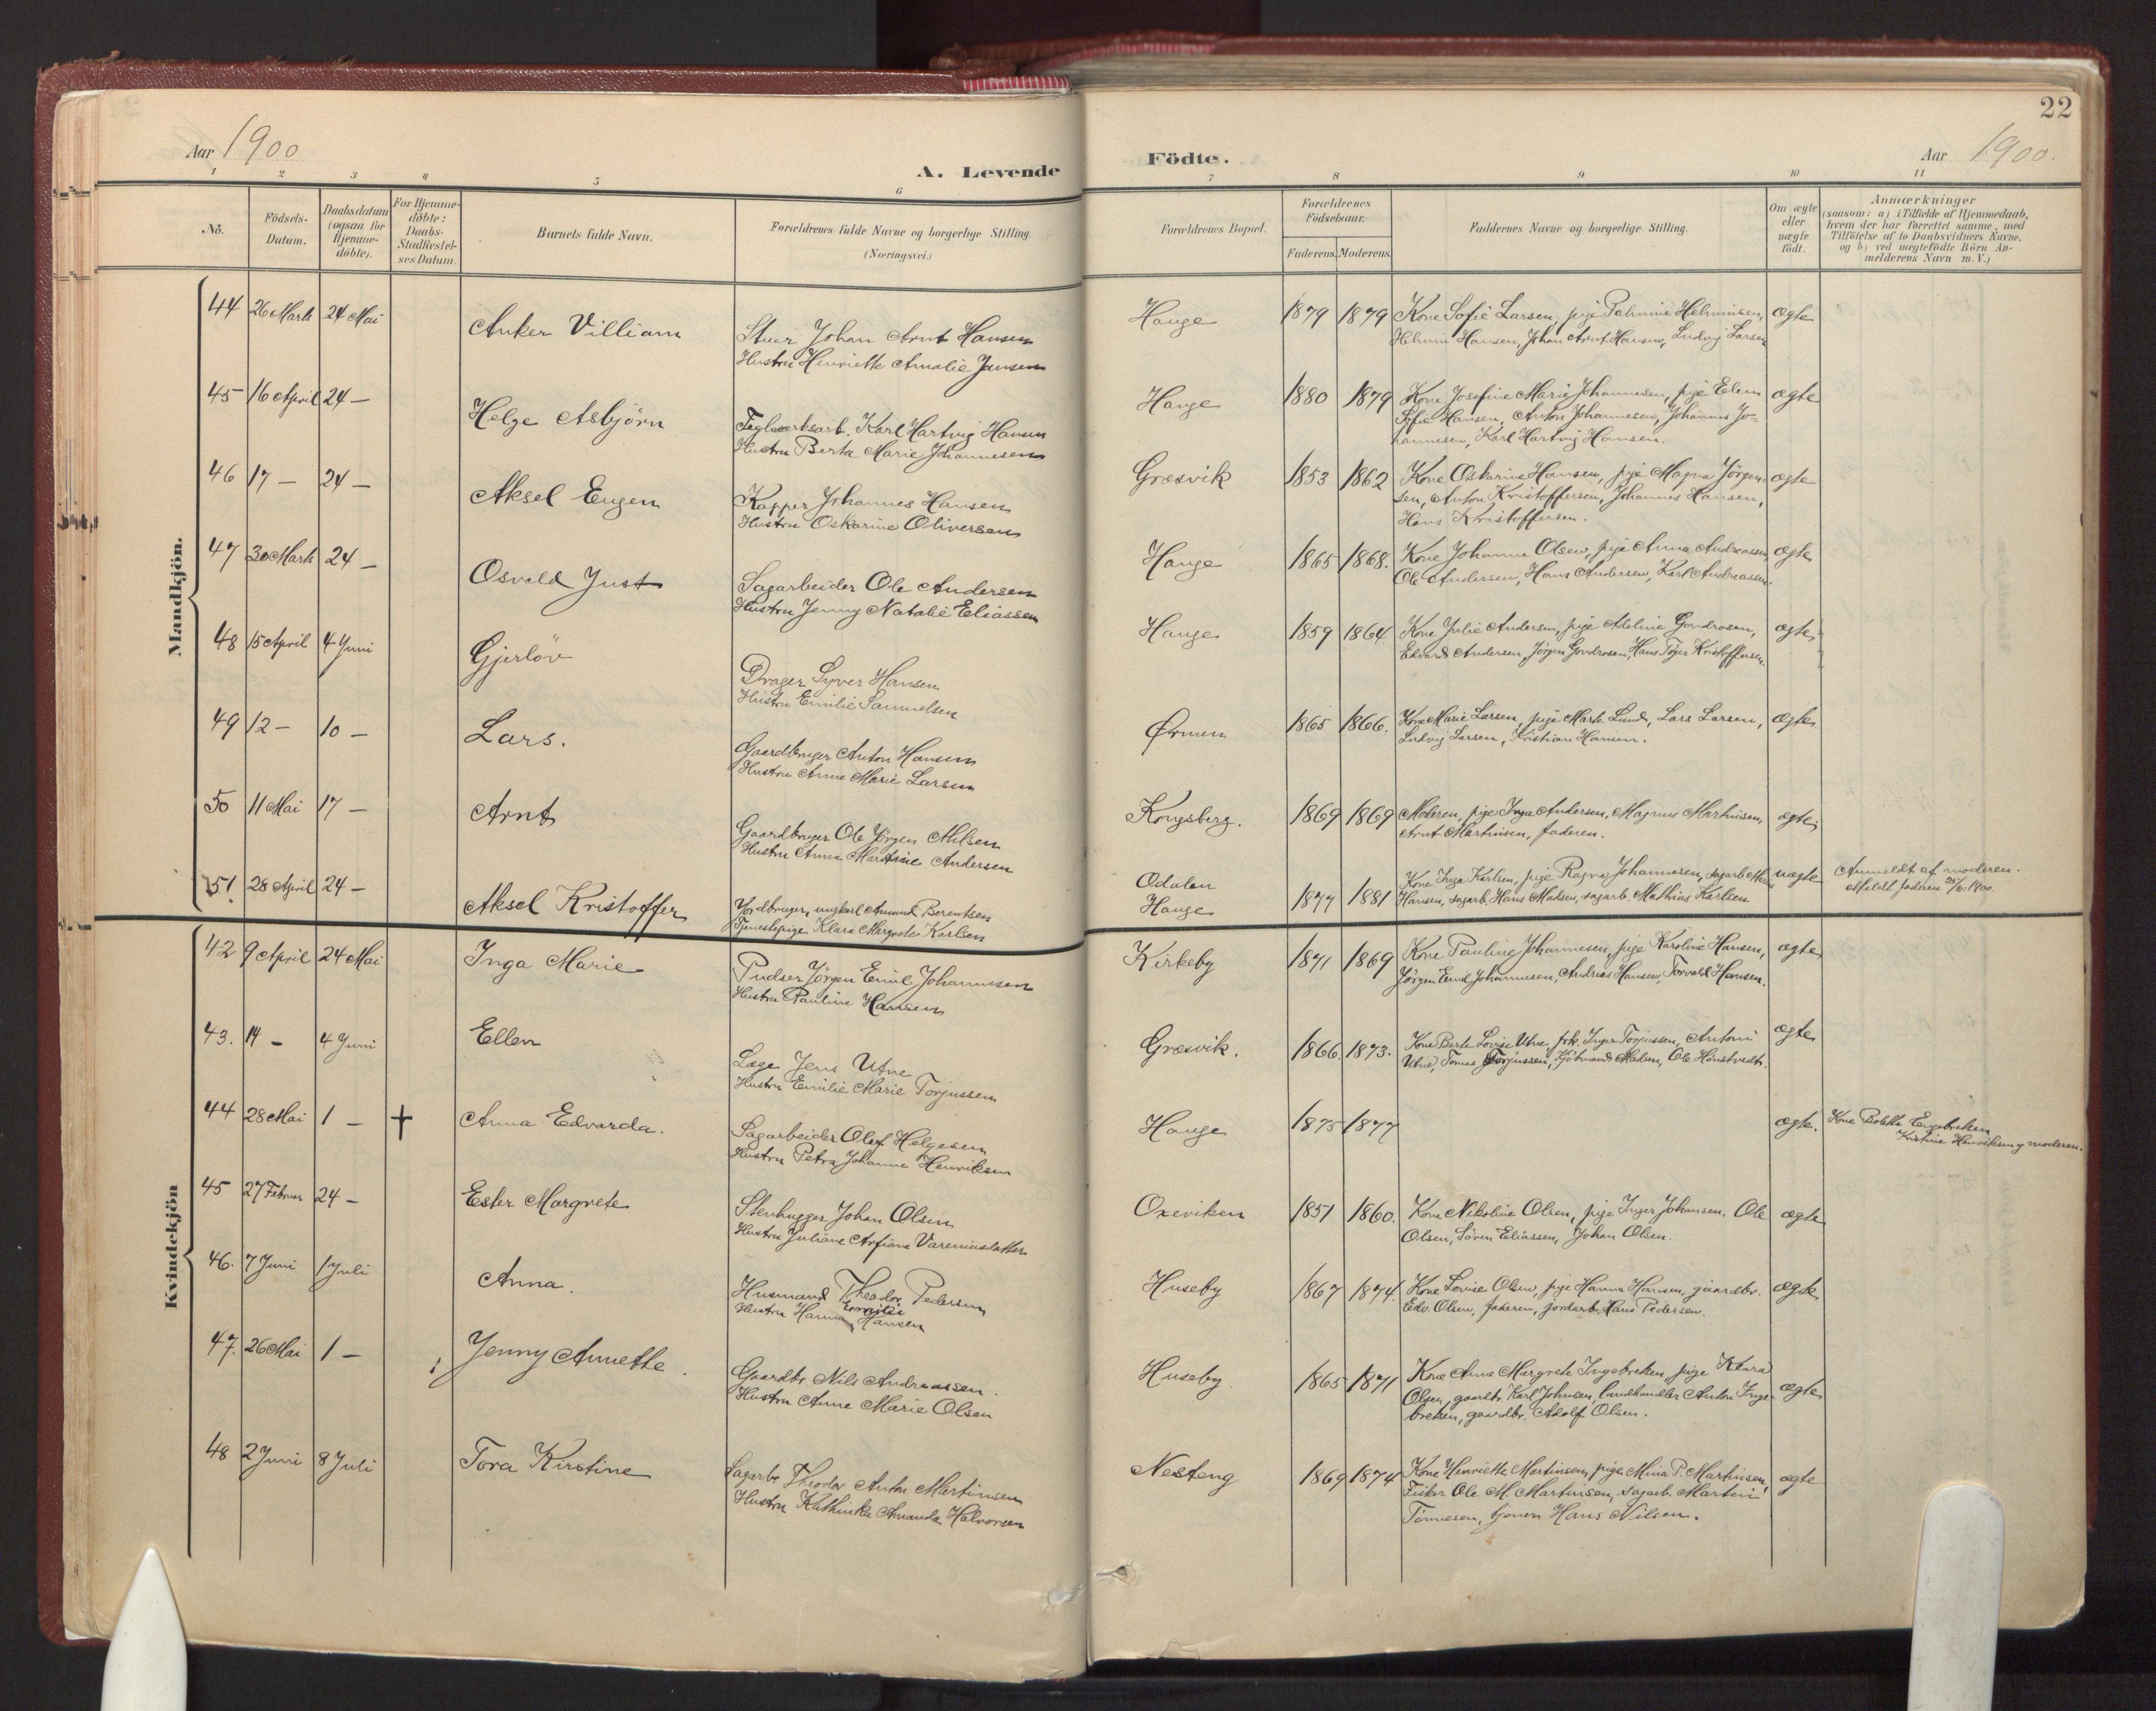 22
Aar 1900
A. Levende Födte.
Aar 1900.
1 2 3 4 5 6 7 8 9 10 11
No.
Födsels-
Datum.
Daabsdatum
(ogsaa for
Hjemme-
döbte).
For Hjemme-
döbte:
Daabs-
Stadfæstel-
ses Datum.
Barnets fulde Navn.
Forældrenes fulde Navne og borgerlige Stilling.
(Næringsvei.)
Forældrenes Bopæl.
Forældrenes
Födselsaar.
Faderens. Moderens.
Faddernes Navne og borgerlige Stilling.
Om ægte
eller
uægte
födt.
Anmærkninger
(saasom: a) i Tilfælde af Hjemmedaab,
hvem der har forrettet samme, med
Tilföielse af to Daabsvidners Navne.
og b) ved uægtefödte Börn An-
melderens Navn m. V.)
Mandkjön.
44 26 Marts 24 Mai Anker Villiam
Stuer Johan Arnt Hansen
Hustru Henriette Amalie Jansen
Hauge 1879 1879
Kone Sofie Larsen, pige Palmine Helminsen,
Helmin Hansen, Johan Arnt Hansen, Ludvig Larsen
ægte
45 16 April 24 — Helge Asbjörn
Teglverksarb. Karl Hartvig Hansen
Hustru Berta Marie Johannesen
Hauge 1880 1879
Kone Josefine Marie Johannesen, pige Elen
Sofie Hansen, Anton Johannesen, Johannes Jo-
hannesen, Karl Hartvig Hansen.
ægte
46 17 — 24 — Aksel Eugen
Kapper Johannes Hansen
Hustru Oskarine Oliversen
Græsvik 1853 1862
Kone Oskarine Hansen, pige Magna Jörgen-
sen, Anton Kristoffersen, Johannes Hansen,
Hans Kristoffersen.
ægte
47 30 Marts 24 — Osvald Just
Sagarbeider Ole Andersen
Hustru Jenny Natalie Eliassen
Hauge 1865 1868.
Kone Johanne Olsen, pige Anna Andreassen,
Ole Andersen, Hans Andersen, Karl Andreassen.
ægte
48 15 April 4 Juni Gjerlöv
Drager Syver Hansen
Hustru Emilie Samuelsen
Hauge 1859 1864
Kone Julie Andersen, pige Adeline Gundrosen,
Edvard Andersen, Jörgen Gundrosen, Hans Töger Kristoffersen.
ægte
49 12 — 10 — Lars.
Gaardbruger Anton Hansen
Hustru Anne Marie Larsen
Ørmen 1865 1866.
Kone Marie Larsen, pige Marte Lund, Lars Larsen,
Ludvig Larsen, Kristian Hansen.
ægte
50 11 Mai 17 — Arnt
Gaardbruger Ole Jörgen Nilsen
Hustru Anna Martine Andersen
Kongsberg. 1869 1869
Moderen, pige Inga Andersen, Magnus Martinsen,
Arnt Martinsen, faderen.
ægte
51. 28 April 24 — Aksel Kristoffer
Jordbruger, ungkarl Amund Berentsen
Tjenestepige Klara Margrete Karlsen
Odalen
Hauge 1877 1881
Kone Inga Karlsen, pige Ragna Johannesen, sagarb.
Hansen, sagarb. Hans Madsen, sagarb. Mathias Karlsen
uægte
Anmeldt af moderen.
Afældt faderen 25/6 1900.
Kvindekjön
42 9 April 24 Mai Inga Marie
Pudser Jörgen Emil Johannesen
Hustru Pauline Hansen
Kirkeby 1871 1869
Kone Pauline Johannesen, pige Karoline Hansen,
Jörgen Emil Johannesen, Andreas Hansen, Torvald Hansen.
ægte
43. 14 — 4 Juni Ellen
Læge Jens Utne
Hustru Emilie Marie Torjussen
Græsvik. 1866. 1873.
Kone Berte Lovise Utne, frk. Inga Torjussen, Antoni
Utne, Tomas Torjussen, Kjöbmand Madsen, Ole Hanstvedt.
ægte
44 28 Mai 1 — + Anna Edvarda.
Sagarbeider Olaf Helgesen
Hustru Petra Johanne Henriksen
Hauge 1875 1877
ægte.
Kone Bolette Engebretsen,
Kristine Henriksen og moderen.
45 27 Februar 24 — Ester Margrete
Stenhugger Johan Olsen
Hustru Juliane Arfiane Vareniusdatter
Oxeviken 1851 1860.
Kone Nikoline Olsen, pige Inger Johansen, Ole
Olsen, Sören Eliassen, Johan Olsen.
ægte
46. 7 Juni 1 Juli Anna.
Husmand Theodor Pedersen
Hustru Hanna Emilie Hansen
Huseby 1867 1874.
Kone Lovise Olsen, pige Hanna Hansen, gaardbr.
Edv. Olsen, faderen, jordarb. Hans Pedersen.
ægte
47. 26 Mai 1 — Jenny Annette.
Gaardbr Nils Andreassen.
Hustru Anne Marie Olsen
Huseby. 1865 1871
Kone Anne Margrete Ingebretsen, pige Klara
Olsen, gaardbr. Karl Johnsen, landhandler Anton Inge-
bretsen, gaardbr. Adolf Olsen.
ægte
48 2 Juni 8 Juli Tora Kirstine
Sagarb. Theodor Anton Martinsen
Hustru Kathinka Amanda Halvorsen
Nesteng 1869 1874
Kone Henriette Martinsen, pige Mina P. Martinsen,
Fisker Ole M. Martinsen, sagarb. Martin
Tönnesen, Hans Nilsen.
ægte